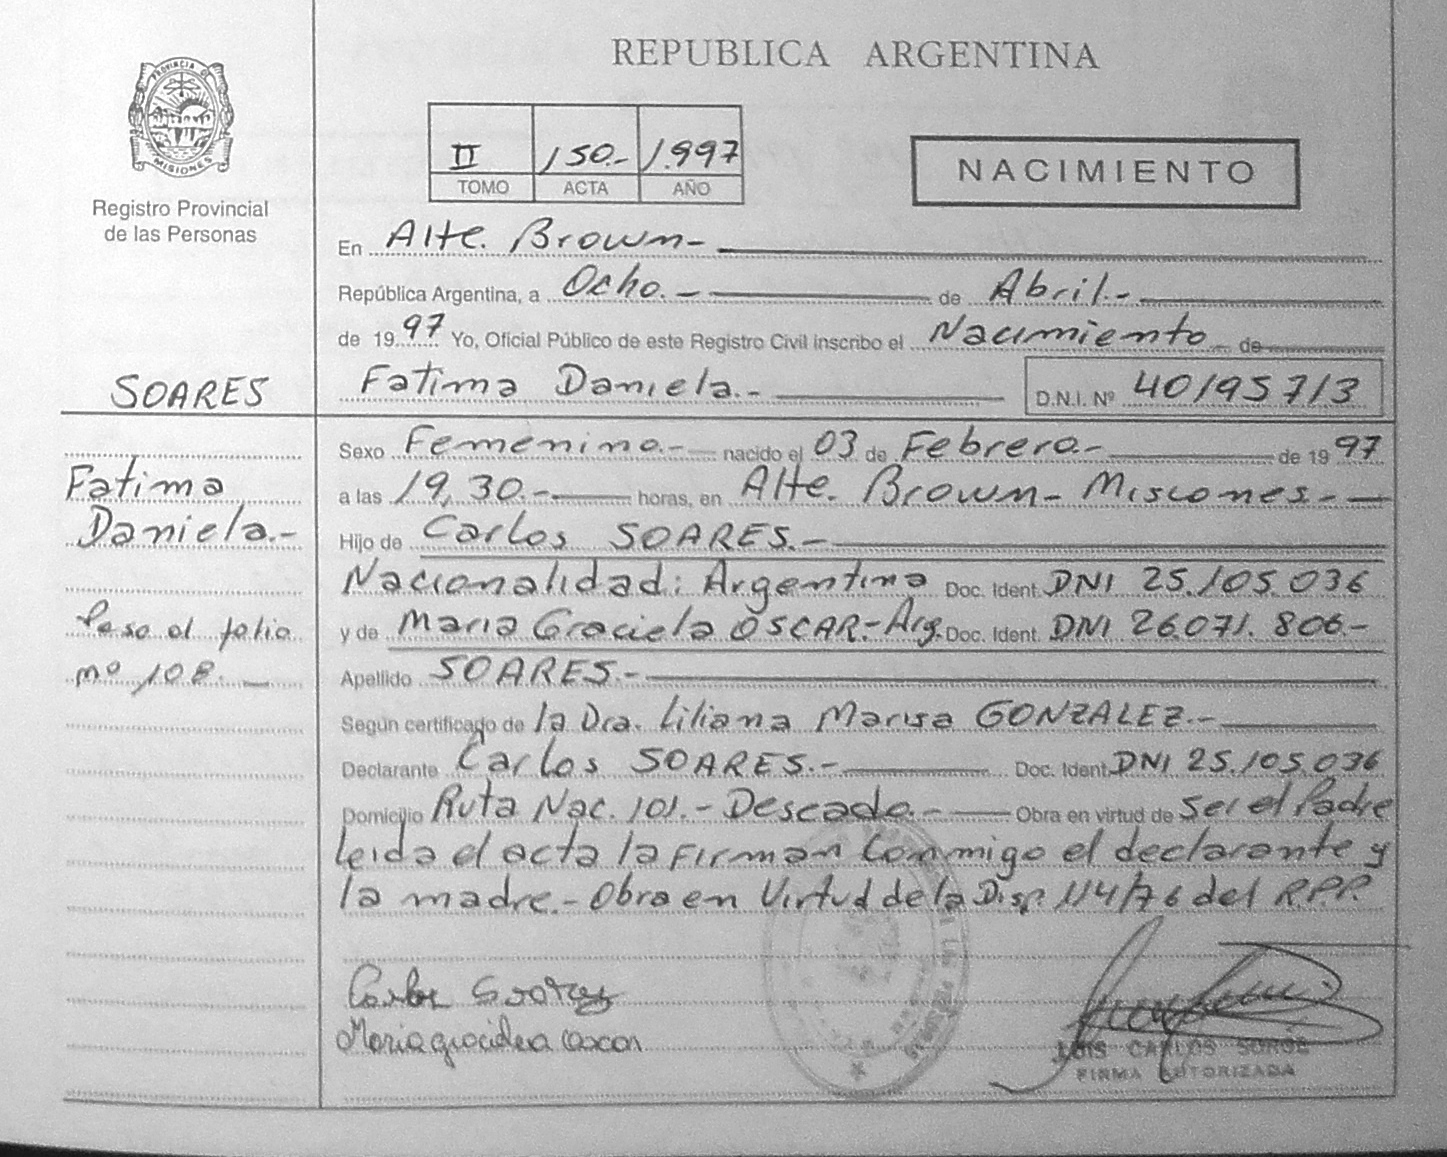 REPUBLICA ARGENTINA
PROVINCIA DE
MISIONES
Registro Provincial
de las Personas
II 150.- 1.997
TOMO ACTA AÑO
NACIMIENTO
En Alte. Brown.-
República Argentina, a Ocho.- de Abril.-
de 1997 Yo, Oficial Público de este Registro Civil inscribo el Nacimiento de
SOARES Fatima Daniela.- D.N.I. Nº 40195713
Sexo Femenino.- nacido el 03 de Febrero.- de 1997
Fatima
a las 19,30.- horas, en Alte. Brown - Misiones.-
Daniela.-
Hijo de Carlos SOARES.-
Nacionalidad: Argentina Doc. Ident. DNI 25.105.036
Paso al folio
y de Maria Graciela OSCAR.- Arg. Doc. Ident. DNI 26.071.806.-
nº 108.-
Apellido SOARES.-
Según certificado de la Dra. Liliana Marisa GONZALEZ.-
Declarante Carlos SOARES.- Doc. Ident. DNI 25.105.036
Domicilio Ruta Nac. 101.- Deseado.- Obra en virtud de Ser el Padre
leida el acta la Firman Conmigo el declarante y
la madre.- Obra en Virtud de la Disp. 114/76 del R.P.P.
Carlos Soares
Maria oscar
LUIS CARLOS SORGE
FIRMA AUTORIZADA